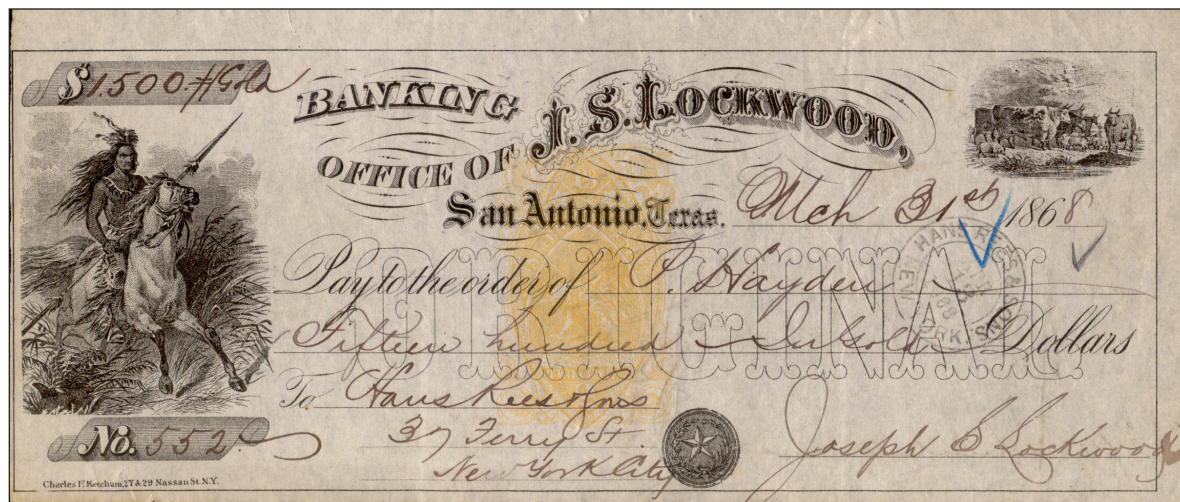 $1.500.// Gold
BANKING
OFFICE OF J. S. LOCKWOOD,
San Antonio, Texas. Mch 31st 1868
Pay to the order of P. Hayden
Fifteen hundred — In Gold Dollars
ORIGINAL
To Hans Rees & Sons
37 Ferry St.
New York City
Joseph C. Lockwood
No. 552
HANS REES & SONS
NEW YORK
Charles F. Ketcham, 27 & 29 Nassau St. N.Y.